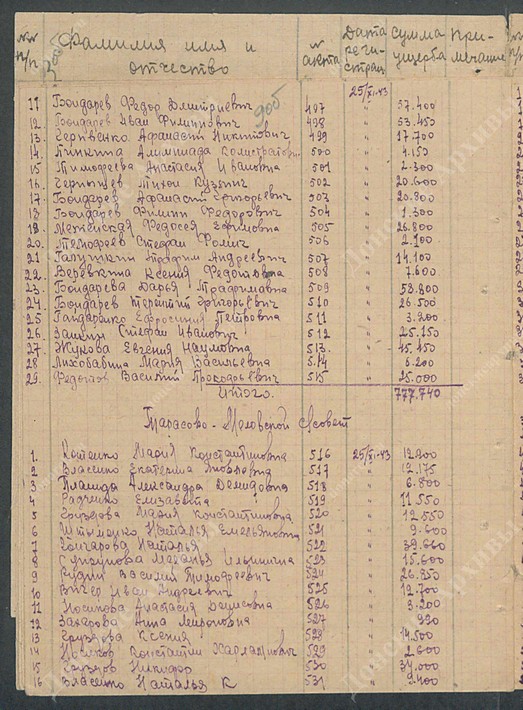 №№ п/п Фамилия имя и отчество № акта Дата регистрац сумма ущерба Примечание
25/XI-43
11. Бондарев Федор Дмитриевич 497 " 57.400
12. Бондарев Иван Филиппович 498 " 53.450
13. Черивенко Афанасий Никитович 499 " 17.700
14. Пинкина Калистратовн 500 " 4.150
15 Тимофеева Анастасия Ивановна 501 " 2.300
16. Чернышев Тихон Кузьмич 502 " 20.600
17. Бондарев Афанасий Григорьевич 503 " 20.800
18 Бондарев Филипп Федорович 504 " 1.300
19. Федосея Ефимовна 505 " 26.800
20. Тимофеев Стефан Фомич 506 " 2.100
21 Галушкин Трофим Андреевич 507 " 14.100
22. Веревкина Ксения Федотовна 508 " 7.600
23. Бондарева Дарья Трофимовна 509 " 58.800
24. Бондарев Терентий Григорьевич 510 " 26.500
25. Гондаренко Ефросиния Петровна 511 " 3.200
26 Зашин Стефан Иванович 512 " 25.150
27. Жукова Евгения Наумовна 513. " 45.450
28. Лихобабина Мария Васильевна 514 " 6.200
29. Федотов Василий Прокофьевич 515 " 25.000
Итого. 777.740
Тарасово-Меловской с/совет
1. Котенко Мария Константиновна 516 25/XI-43 12.200
2 Власенко Екатерина Яковлевна 517 " 12.175
3 Александра Демидовна 518 " 6.800
4 Радченко Елизавета 519 " 11.550
5 Груздова Мария Константиновна 520 " 12.550
6 Наталья Емельяновна 521 " 9.600
7 Гончарова Наталья 522 " 39.660
8 Меланья Ильинична 523 " 15.600
9 Рудин Василий Тимофеевич 524 " 26.850
10 Иван Андреевич 525 " 12.700
11 Носикова Анастасия Денисовна 526 " 3.200
12 Захарова Анна Мироновна 527 "
13 Груздова Ксения 528 " 14.500
14 Носиков Константин Харлампович 529 " 2.600
15 Груздов Никифор 530 " 34.000
16 Власенко Наталья К 531 " 9.400